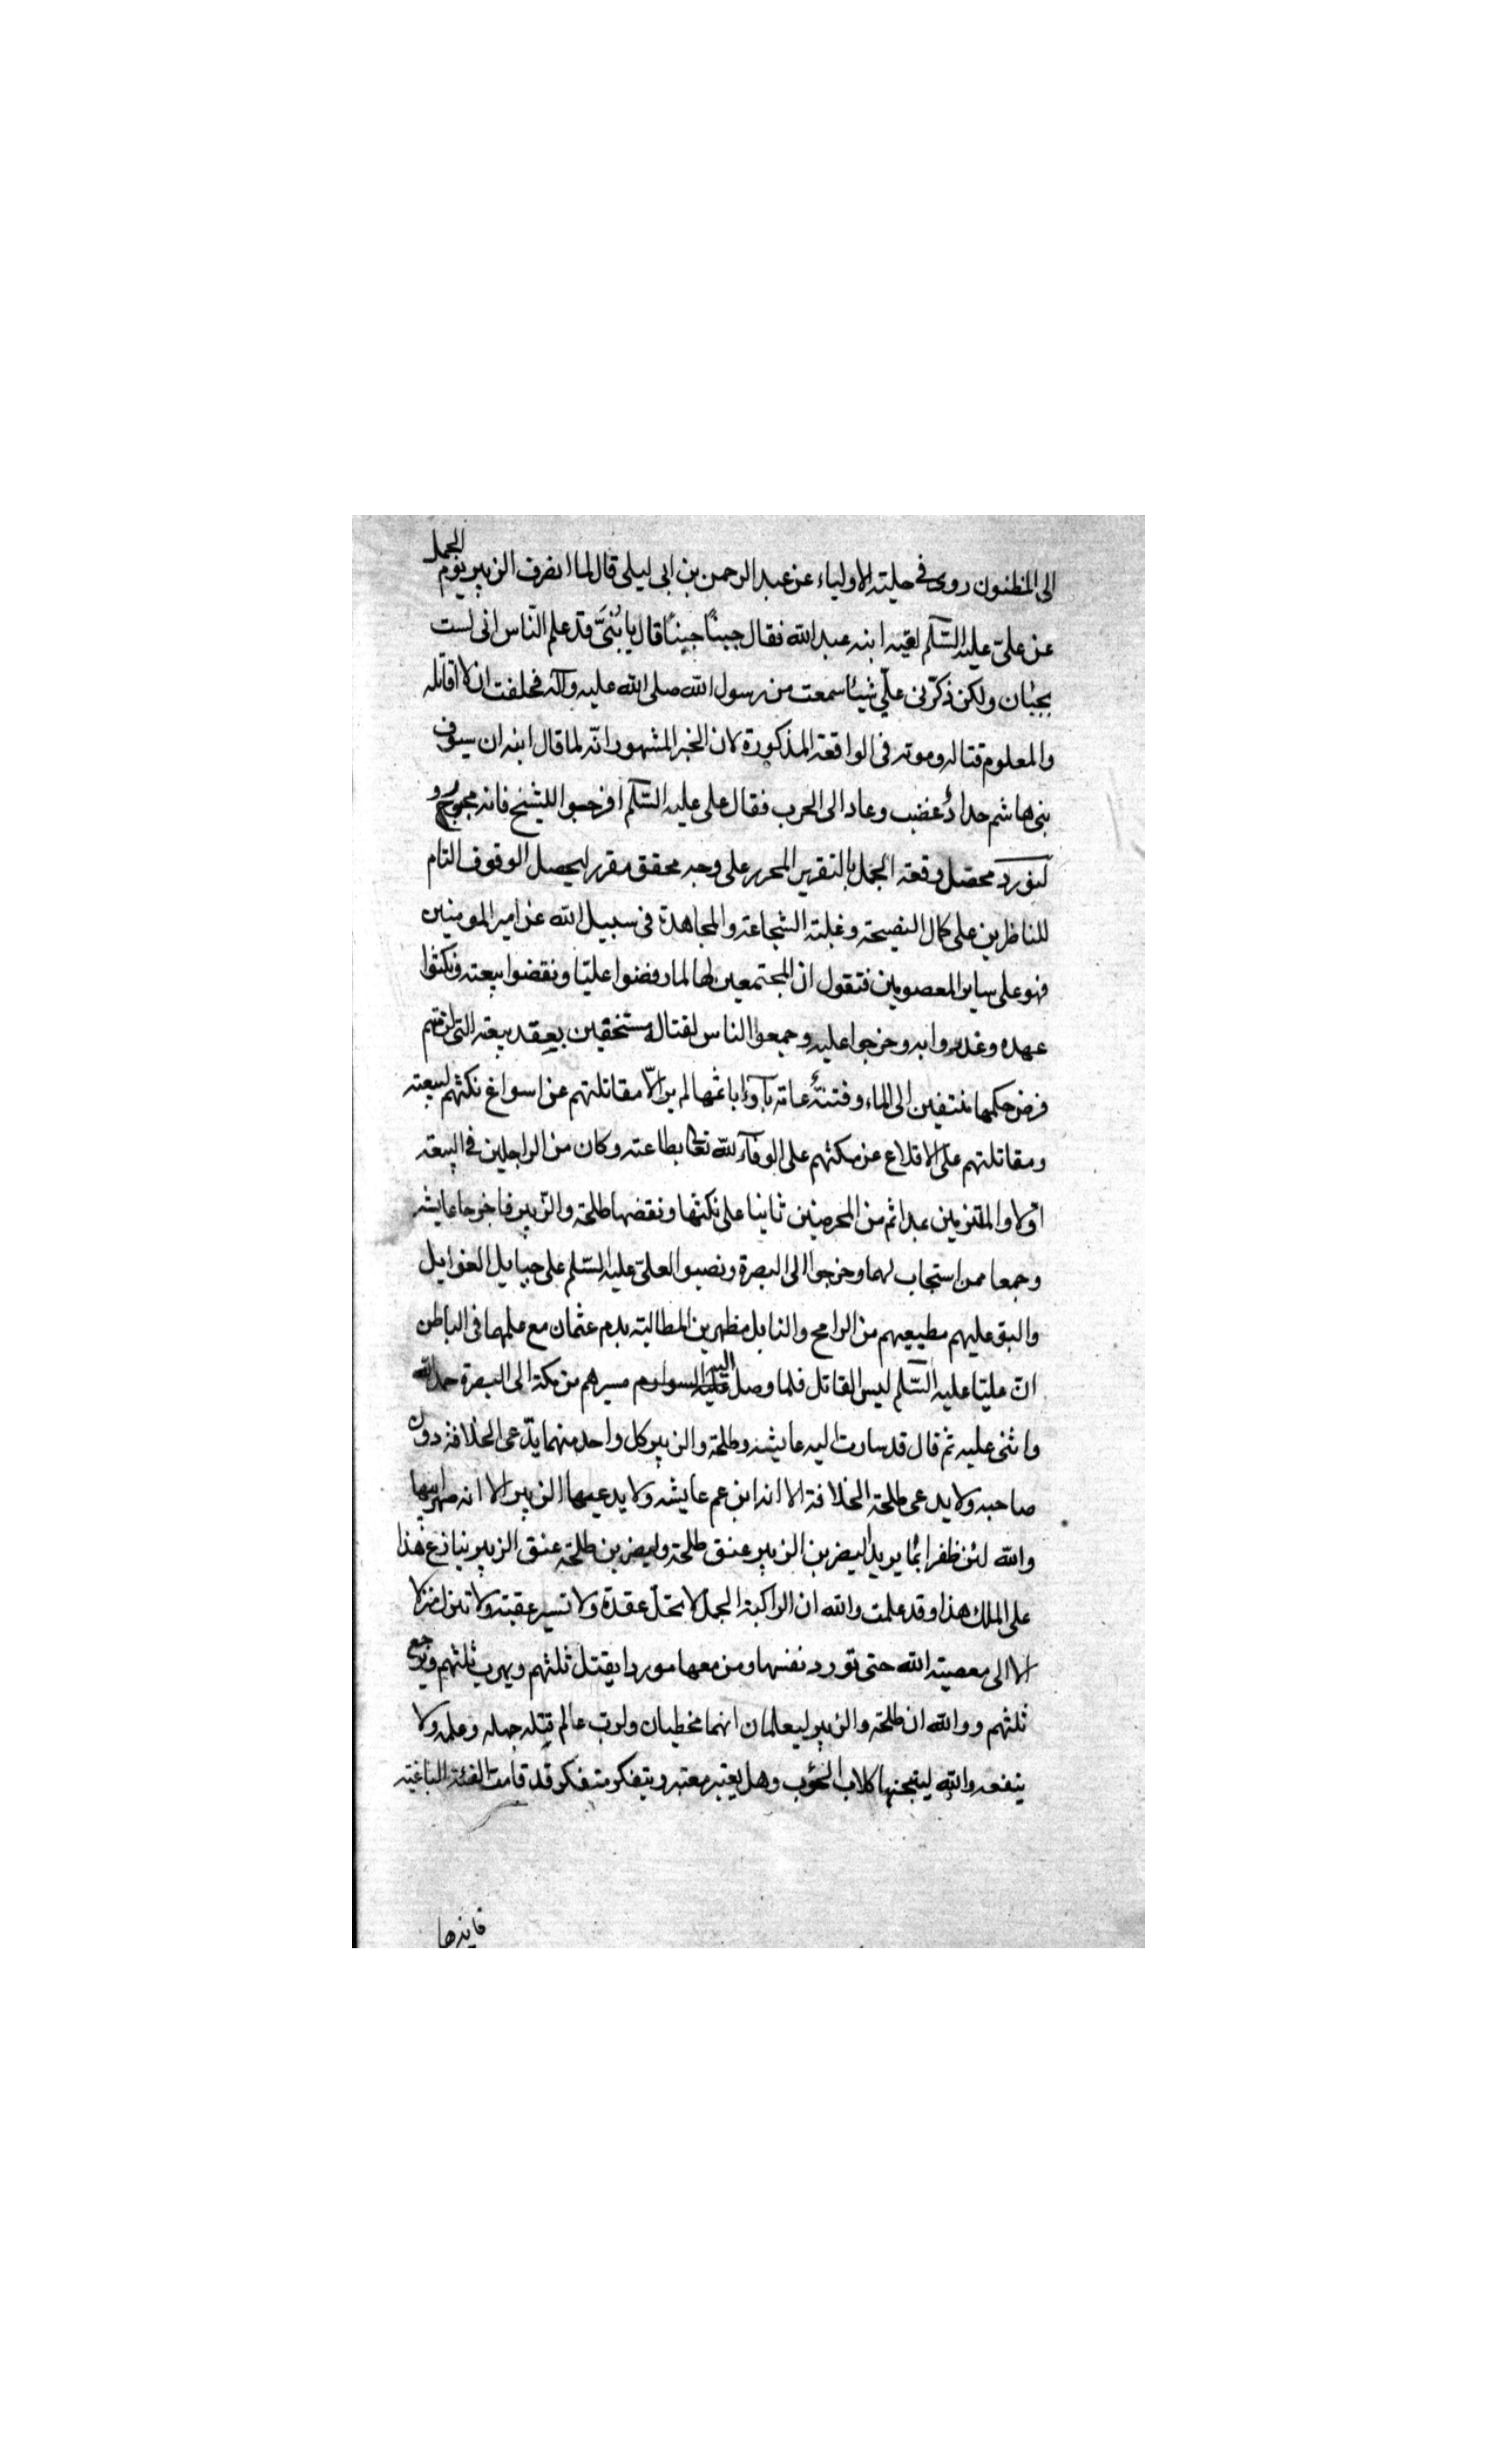 الى المظنون روى في حلية الاولياء عن عبد الرحمن بن ابى ليلى قال لما انصرف الزبير يوم الجمل
عن علىّ عليه السّلم لقيه ابنه عبد الله فقال جبنًا جبنًا قال يا بُنىَّ قد علم النّاس انى لست
بجبان ولكن ذكّرنى علىّ شيئا سمعت من رسول الله صلى الله عليه وآله فحلفت ان لا اقاتله
والمعلوم قتاله وموته فى الواقعة المذكورة لان الخبر المشهور انّه لما قال ابنه ان سيوف
بنى هاشم حداد غضب وعاد الى الحرب فقال على عليه السّلم افرجوا للشيخ فانه
لنورد محصّل وقعة الجمل بالتقرير المحرر على وجه محقق مقرر ليحصل الوقوف التام
للناظرين على كمال النصيحة وغلبة الشجاعة والمجاهدة فى سبيل الله عن امير المومنين
فهو على ساير المعصومين فنقول ان المجتمعين لها لما رفضوا عليّا ونقضوا بيعته ونكثوا
عهده وغدروا به وخرجوا عليه وجمعوا الناس لقتاله مستخفين بعقد بيعته التى لزمهم
فرض حكمها الى وفتنة عامة لم ير الّا مقاتلتهم عن نكثهم لبيعته
ومقاتلتهم على الاقلاع عن نكثهم على الوفآء لله تعالى بطاعته وكان من الداخلين فى البيعة
اولا والملتزمين بها ثم من المحرضين ثانيا على نكثها ونقضها طلحة والزّبير فاخرجا عايشه
وجمعا ممن استجاب لهما وخرجوا الى البصرة ونصبوا لعلىّ عليه السّلم على حبايل الغوايل
والبو عليهم مطيعيهم من الرامح والنابل مظهرين المطالبة بدم عثمان مع علمها فى الباطن
انّ عليّا عليه السّلم ليس القاتل فلما وصل اليه مسيرهم من مكة الى البصرة حمد الله
واثنى عليه ثم قال قد سارت اليه عايشه وطلحة والزبير كل واحد منهما يدّعى الخلافة دون
صاحبه ولا يدعى طلحة الخلافة الا انه ابن عم عايشه ولا يدعيها الزبير الا انه صهر ابيها
والله لئن ظفرا بما يريدا ليضربن الزبير عنق طلحة وليضربن طلحة عنق الزبير ينازع هذا
على الملك هذا وقد علمت والله ان الراكبة الجمل لا تحلّ عقدة ولا تسير عقبة ولا تنزل منزلا
الا الى معصية الله حتى تورد نفسها ومن معها موردا يقتل ثلثهم ويهرب ثلثهم ويرجع
ثلثهم ووالله ان طلحة والزبير ليعلمان انهما مخطيان ولرب عالم قتله جهله وعلمه ولا
ينفعه والله لينبحنها كلاب الحوب وهل يعتبر معتبر ويتفكر متفكر قد قامت الفئة الباغية